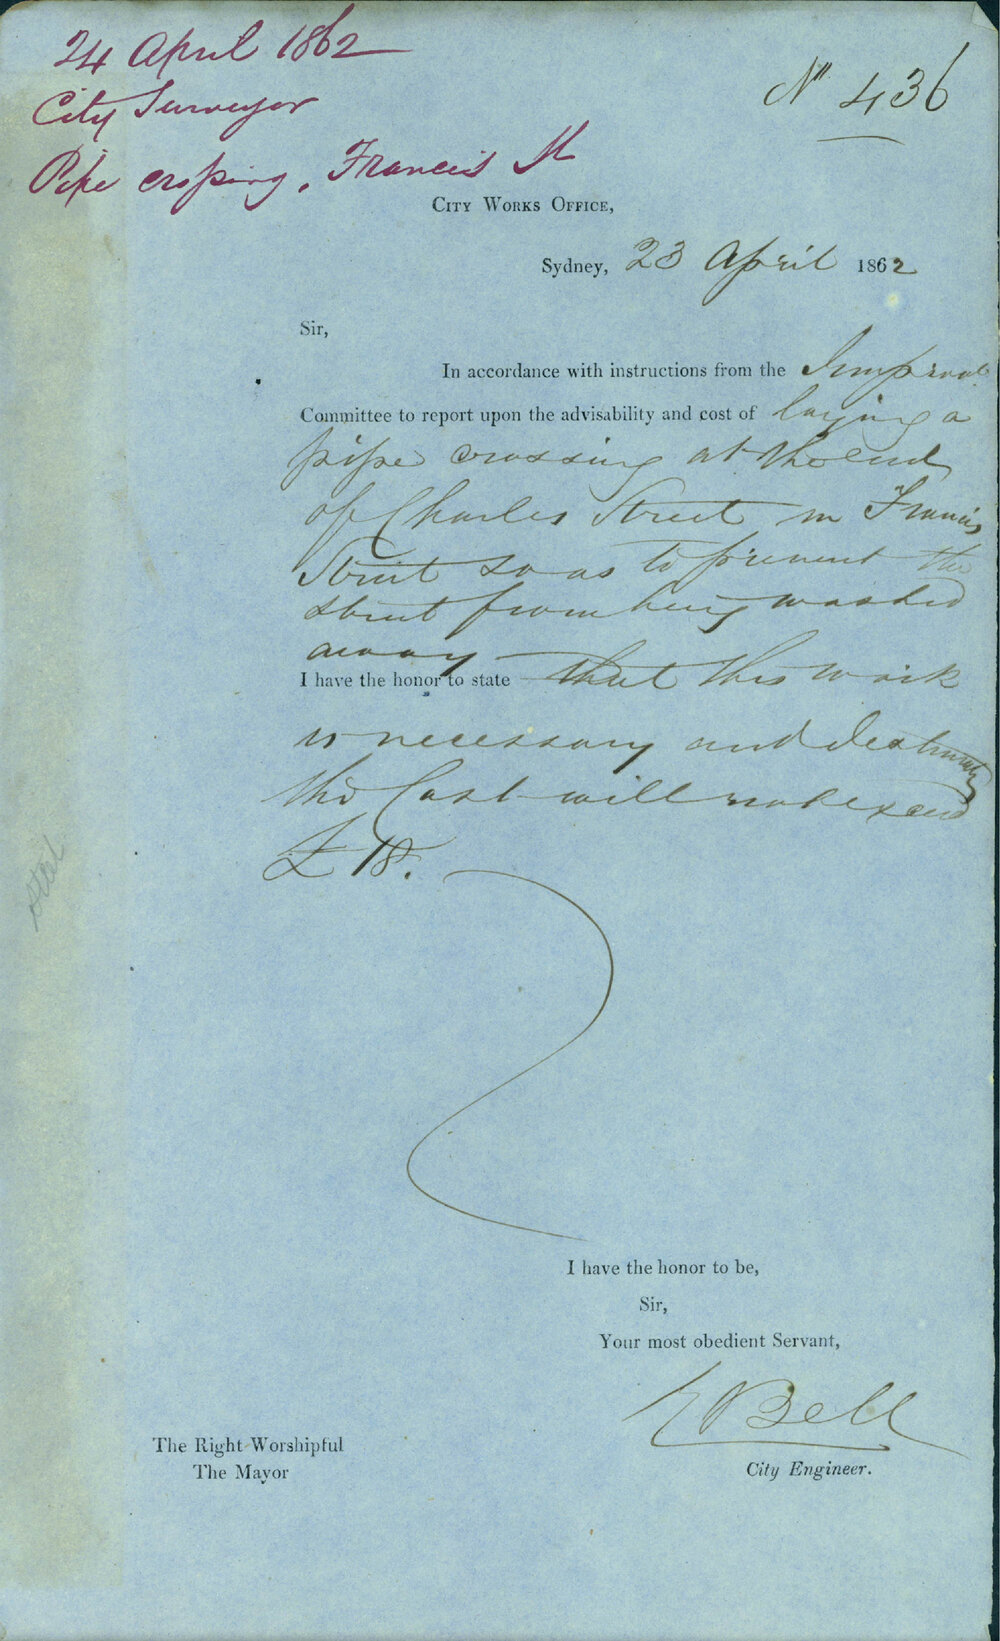 24 April 1862
City Surveyor
Pipe crossing, Francis St
No 436
City Works Office,
Sydney, 23 April 1862
Sir,
In accordance with instructions from the Improvt
Committee to report upon the advisability and cost of laying a
pipe crossing at the end
of Charles Street in Francis
Street so as to prevent the
street from being washed
away
I have the honor to state that this work
is necessary and
the Cost will not exceed
£18.
I have the honor to be,
Sir,
Your most obedient Servant,
E Bell
City Engineer.
The Right Worshipful
The Mayor